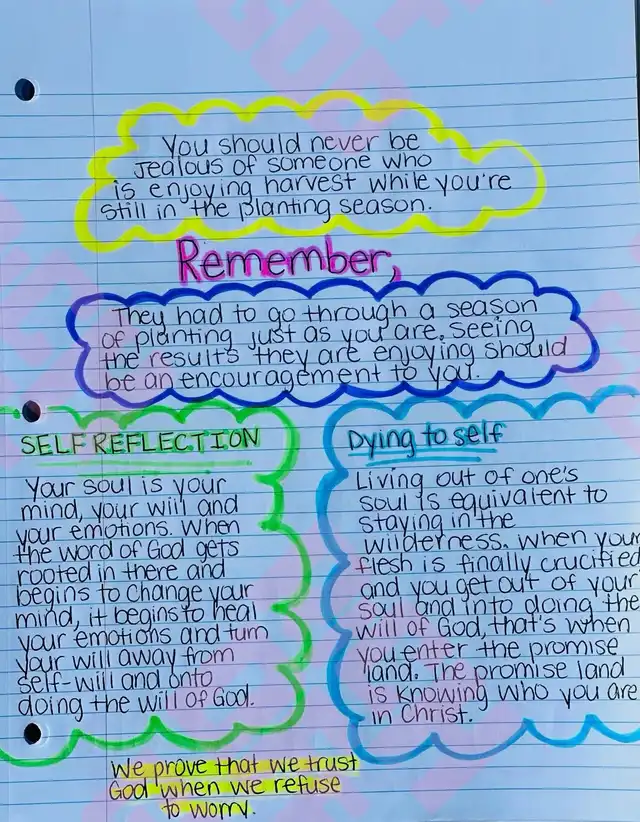 You should never be
jealous of someone who
is enjoying harvest while you're
still in the planting season.
Remember,
They had to go through a season
of planting just as you are. Seeing
the results they are enjoying should
be an encouragement to you.
SELF REFLECTION
Your soul is your
mind, your will and
your emotions. When
the word of God gets
rooted in there and
begins to change your
mind, it begins to heal
your emotions and turn
your will away from
self-will and onto
doing the will of God.
Dying to self
Living out of one's
soul is equivalent to
staying in the
wilderness. When your
flesh is finally crucified
and you get out of your
soul and into doing the
will of God, that's when
you enter the promise
land. The promise land
is knowing who you are
in Christ.
We prove that we trust
God when we refuse
to worry.